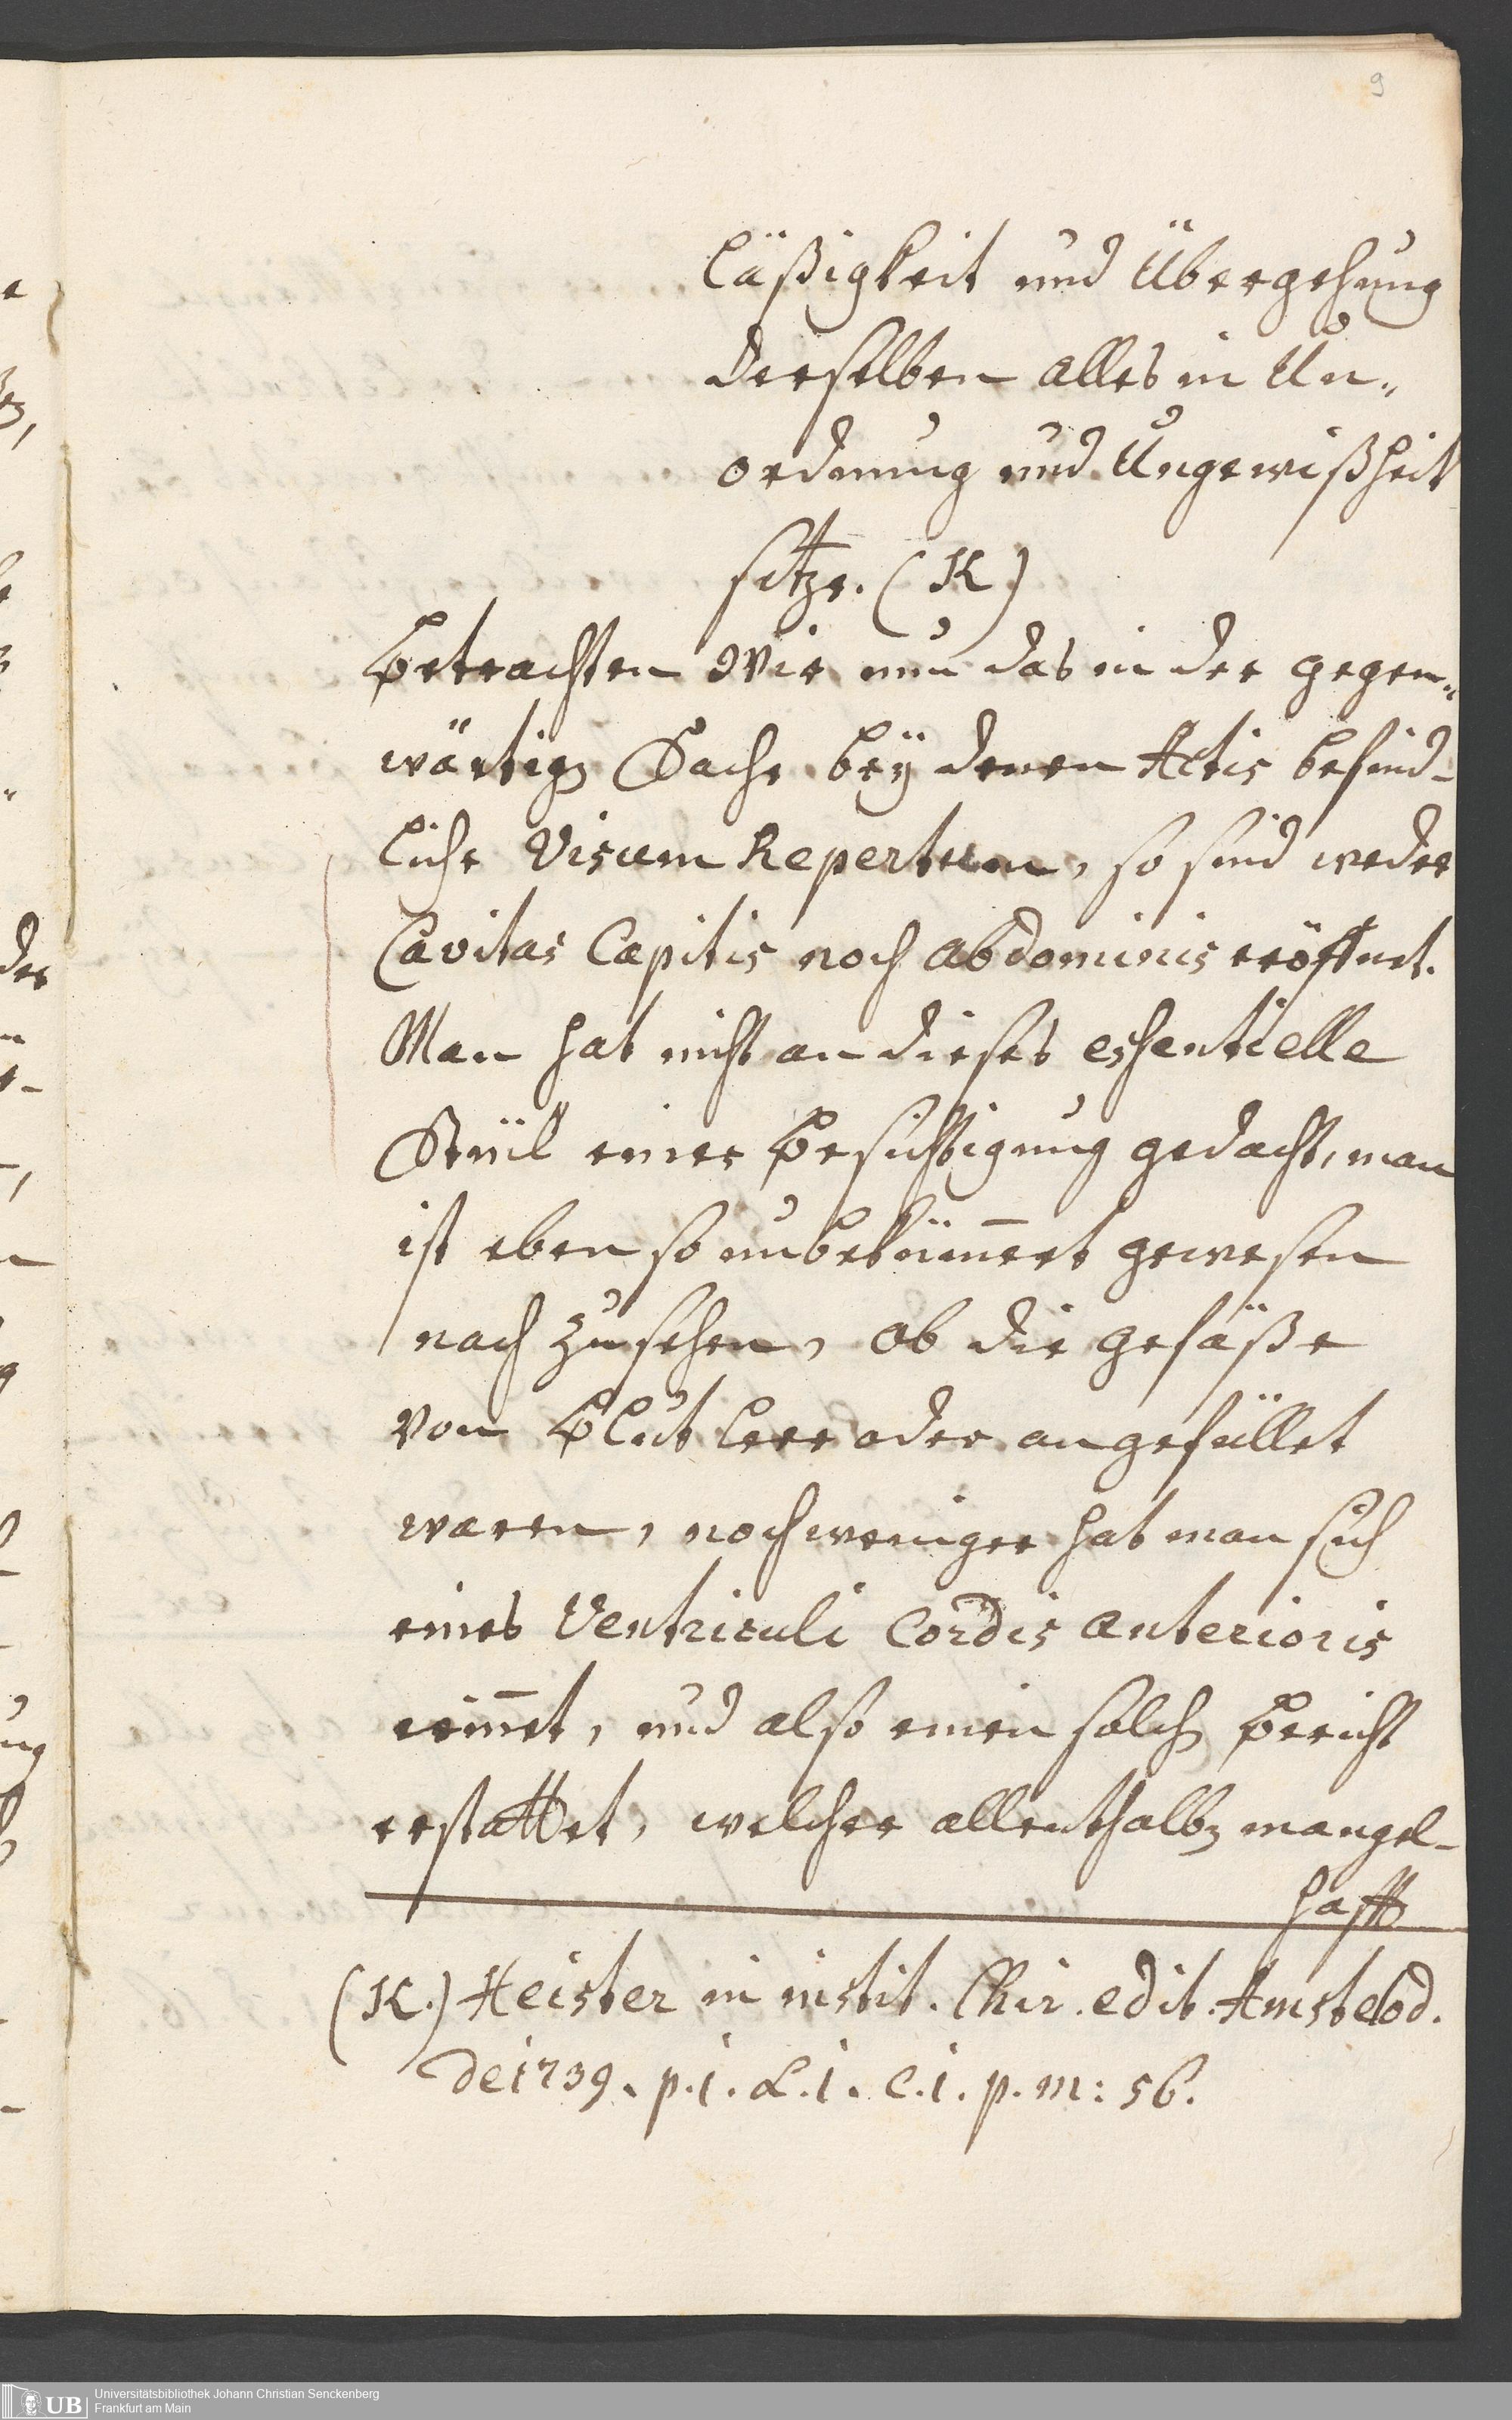 9
läßigkeit und Übergehung
derselben alles in Un„
ordnung und Ungewißheit
setze. (K)
Betrachten Wir nun das in der gegen„
wärtigen Sache beÿ denen Actis befind-
liche Visum Repertum, so sind weder
Cavitas Capitis noch abdominis eröffnet.
Man hat nicht an dieses essentielle
Stück einer Besichtigung gedacht, man
ist eben so unbekümm̄ert gewesen
nach zu sehen, ob die gefäße
von Blut leer oder angefüllet
waren, noch weniger hat man sich
eines Ventriculi Cordis anterioris
erin̄ert, und also einen solchen Bericht
erstattet, welcher allenthalben mangel-
hafft
(K.) Heister in instit. Chir. edit. Amstelod.
de 1739. p. 1. L. 1. C. 1. p. m: 56.
UB Universitätsbibliothek Johann Christian Senckenberg
Frankfurt am Main